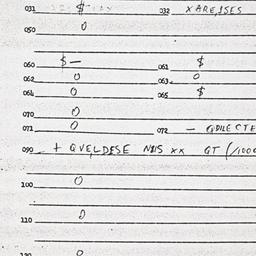 031 $ 032 XARE,ISES
050 0
060 $ — 061 $
062 0 063 0
064 0 065 $
070 0
071 0 072 —
099 + QVE,LDESE NBIS xx GT (/1000
100 0
110 0
120 0